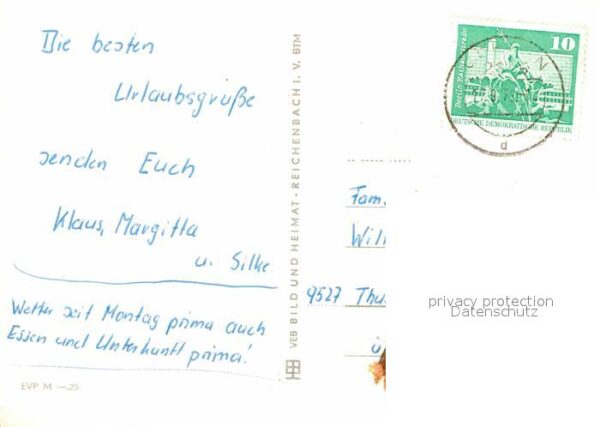 Die besten
Urlaubsgrüße
senden Euch
Klaus, Margitta
u. Silke
Wetter seit Montag prima auch
Essen und Unterkunft prima!
EVP M —.25
VEB BILD UND HEIMAT - REICHENBACH I. V. BTM
10
Berlin Rathausstraße
DEUTSCHE DEMOKRATISCHE REPUBLIK
d
Fam.
9527
privacy protection
Datenschutz